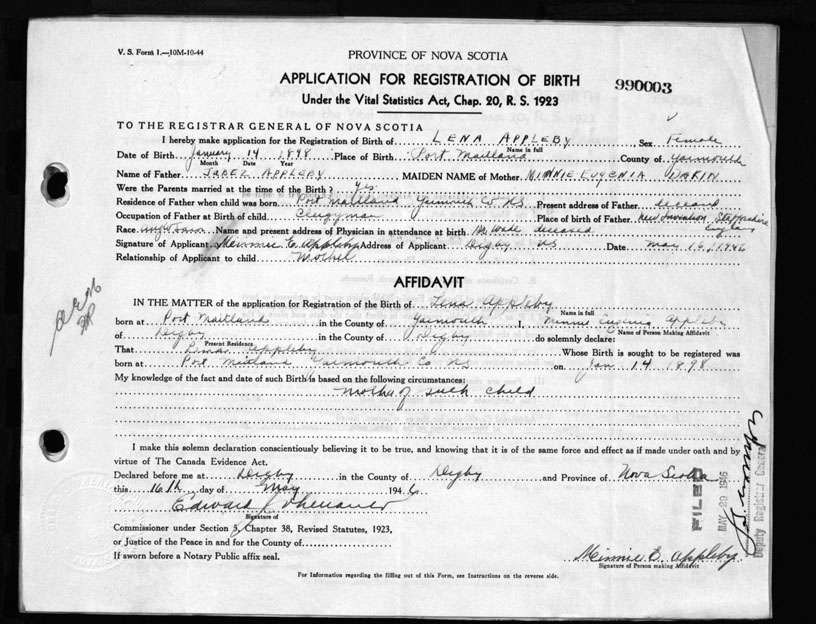 V. S. Form 1.—10M-10-44
PROVINCE OF NOVA SCOTIA
APPLICATION FOR REGISTRATION OF BIRTH
990003
Under the Vital Statistics Act, Chap. 20, R. S. 1923
TO THE REGISTRAR GENERAL OF NOVA SCOTIA
I hereby make application for the Registration of Birth of LENA APPLEBY Sex Female
Name in full
Date of Birth January 14 1898 Place of Birth Port Maitland County of Yarmouth
Month Date Year
Name of Father JABEZ APPLEBY MAIDEN NAME of Mother MINNIE EUGENIA DAKIN
Were the Parents married at the time of the Birth? Yes
Residence of Father when child was born Port Maitland Yarmouth Co NS Present address of Father deceased
Occupation of Father at Birth of child Clergyman Place of birth of Father Staffordshire
England
Race Name and present address of Physician in attendance at birth Dr Wade deceased
Signature of Applicant Minnie E. Appleby Address of Applicant Digby NS Date May 16, 1946
Relationship of Applicant to child Mother
AFFIDAVIT
IN THE MATTER of the application for Registration of the Birth of Lena Appleby
Name in full
born at Port Maitland in the County of Yarmouth I, Minnie Eugenia Appleby
Name of Person Making Affidavit
of Digby in the County of Digby do solemnly declare:
Present Residence
That Lena Appleby Whose Birth is sought to be registered was
born at Port Maitland Yarmouth Co NS on Jan 14 1898
My knowledge of the fact and date of such Birth is based on the following circumstances:
Mother of such child
I make this solemn declaration conscientiously believing it to be true, and knowing that it is of the same force and effect as if made under oath and by
virtue of The Canada Evidence Act.
Declared before me at Digby in the County of Digby and Province of Nova Scotia
this 16th day of May 1946
Edward
Signature of
Commissioner under Section 5, Chapter 38, Revised Statutes, 1923,
or Justice of the Peace in and for the County of
If sworn before a Notary Public affix seal.
Minnie E. Appleby
Signature of Person making Affidavit
For Information regarding the filling out of this Form, see Instructions on the reverse side.
FILED
MAY 29 1946
Deputy Registrar General